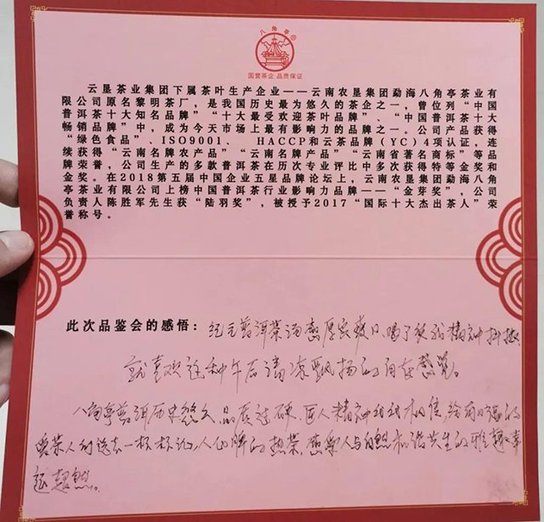 八角亭®
国营茶企 品质保证
云垦茶业集团下属茶叶生产企业——云南农垦集团勐海八角亭茶业有
限公司原名黎明茶厂，是我国历史最为悠久的茶企之一，曾位列“中国
普洱茶十大知名品牌”“十大最受欢迎茶品牌”、“中国普洱茶十大
畅销品牌”中，成为今天市场上最有影响力的品牌之一。公司产品获得
“绿色食品”、ISO9001、 HACCP和云茶品牌（YC）4项认证，连
续获得“云南名牌农产品”“云南名牌产品”“云南省著名商标”等品
牌荣誉，公司生产的多款普洱茶在历次专业评比中多次获得特等金奖和
金奖。在2018第五届中国企业五星品牌论坛上，云南农垦集团勐海八角
亭茶业有限公司上榜中国普洱茶行业影响力品牌——“金芽奖”，公司
负责人陈胜军先生获“陆羽奖”，被授予2017“国际十大杰出茶人”荣
誉称号。
此次品鉴会的感悟：纪元普洱茶汤感厚实爽口，喝了使我精神抖擞，
就喜欢这种午后清凉飘扬的自在感觉。
八角亭普洱历史悠久，品质过硬，匠人精神
爱茶人们送去一杯杯 的热茶， 人与自然和谐共生的雅趣